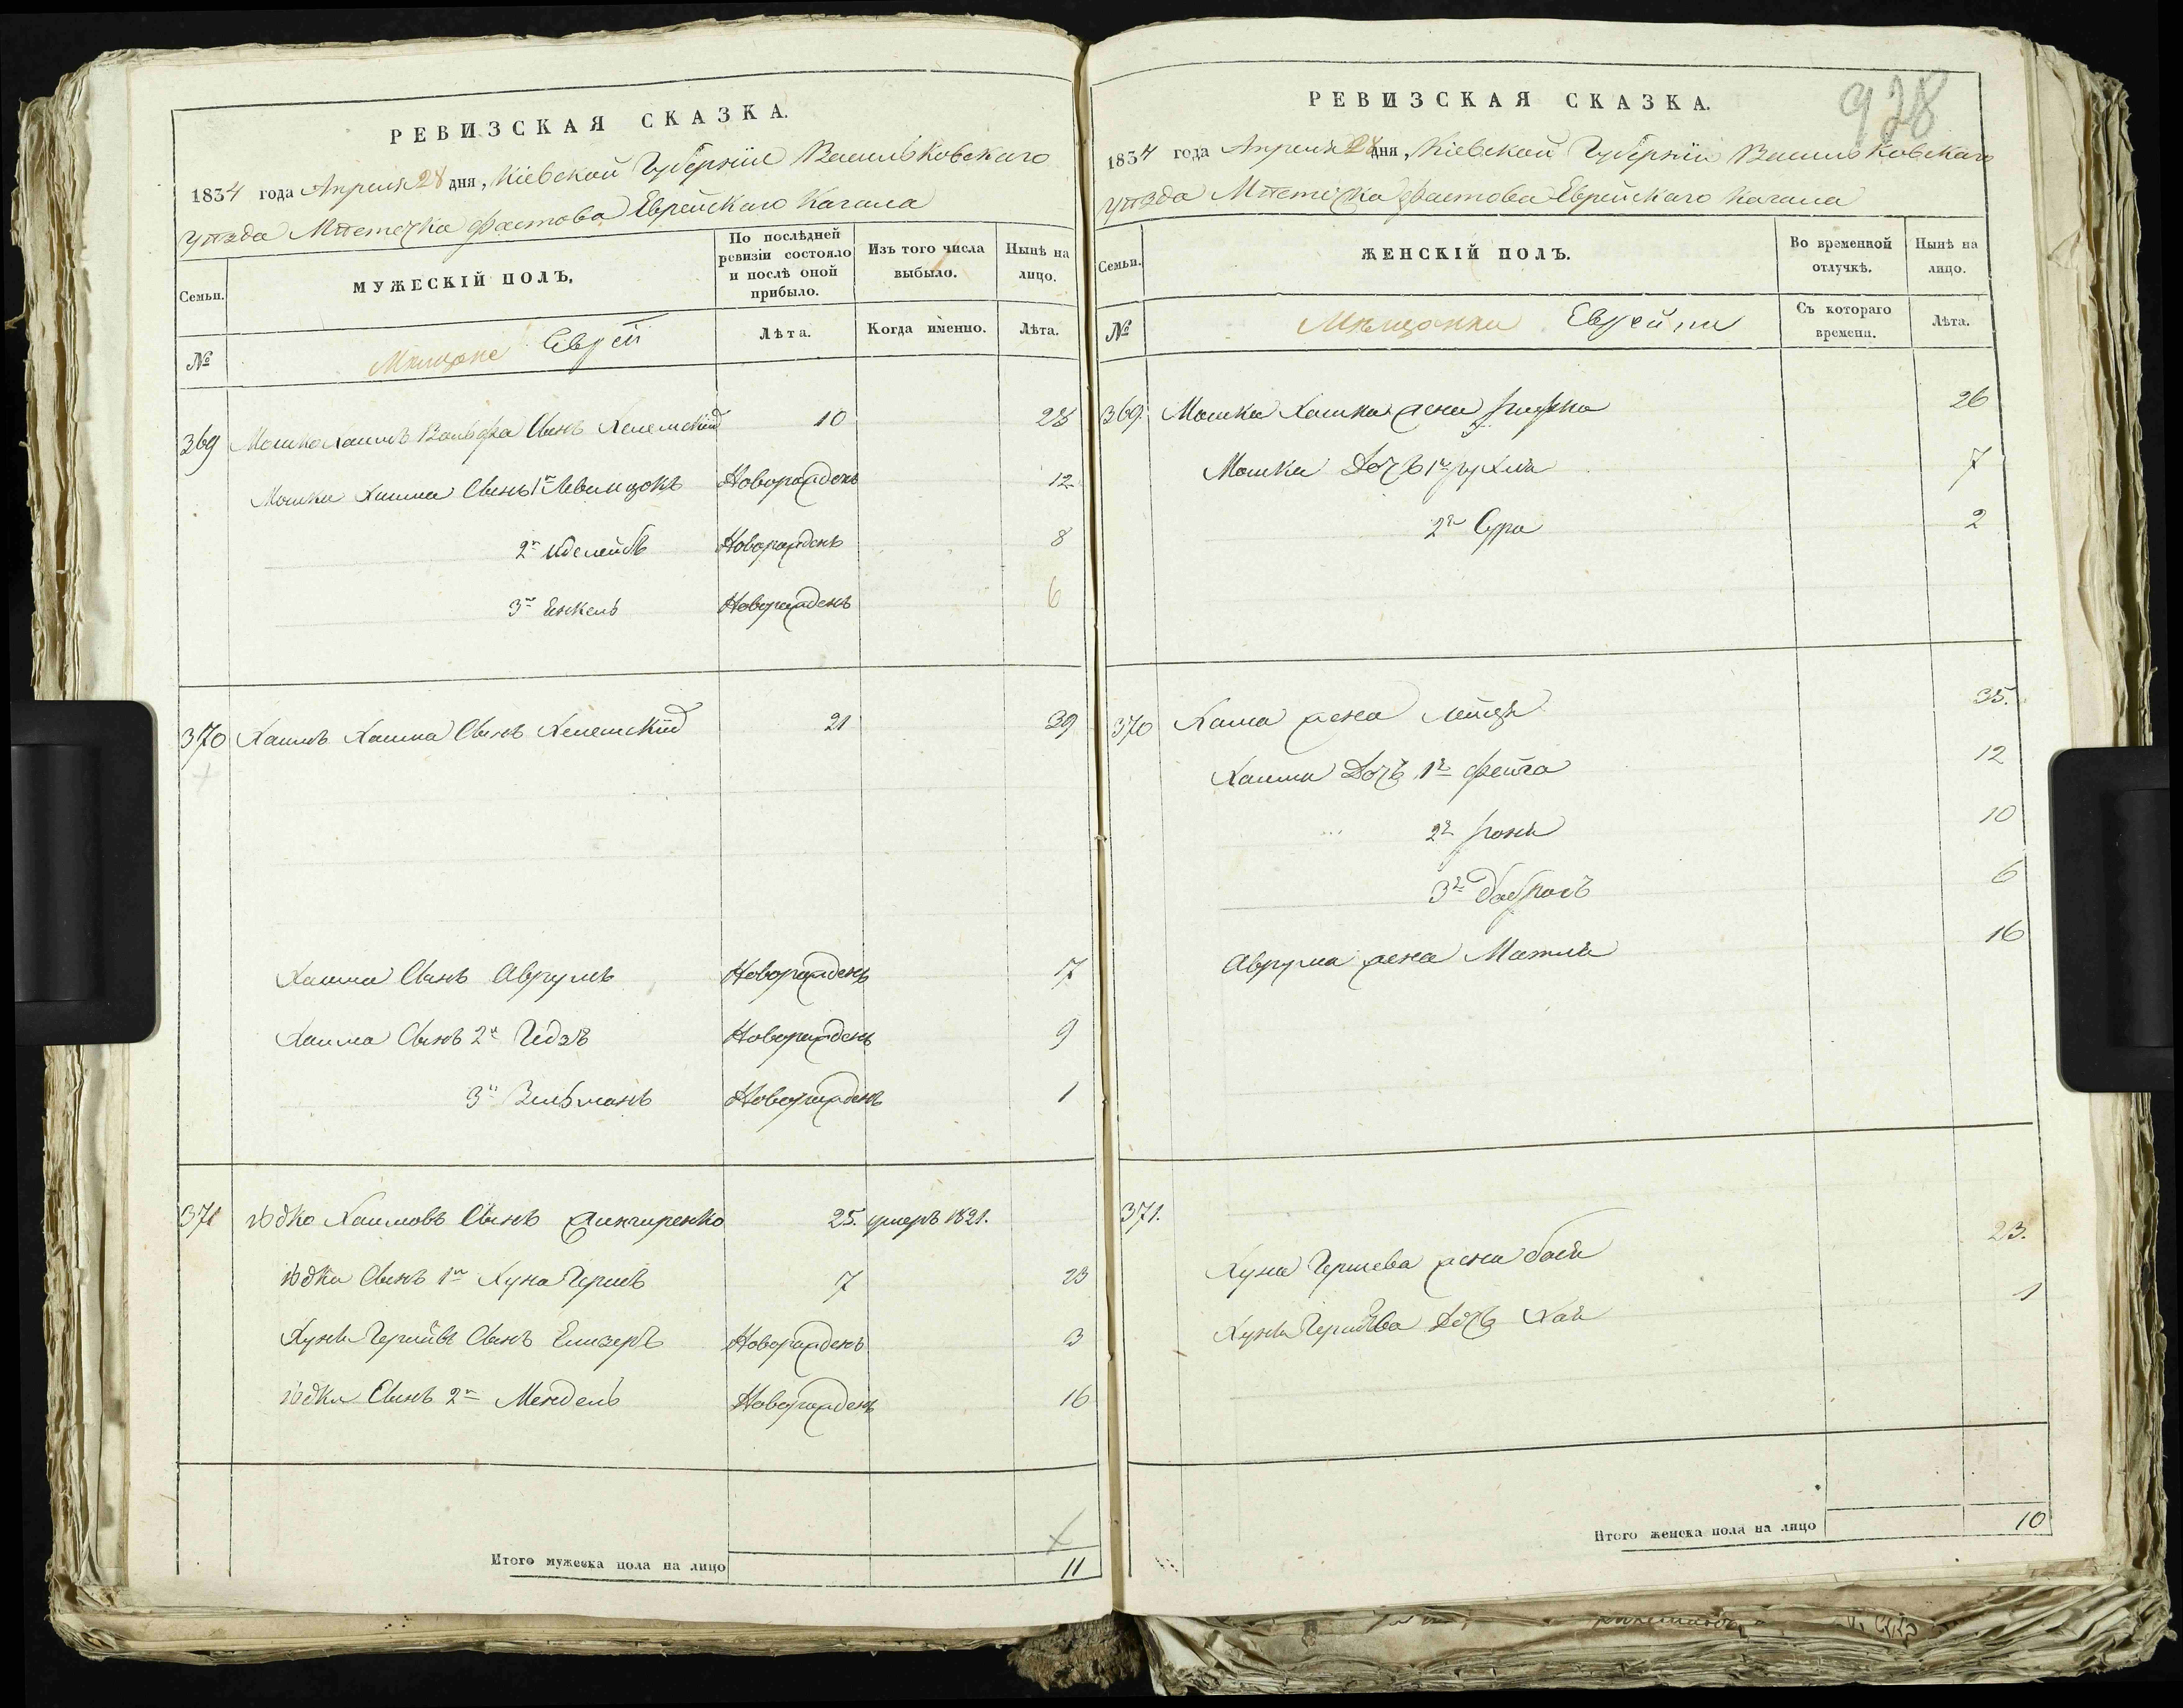 РЕВИЗСКАЯ СКАЗКА.
1834 года Апреля 28 дня, Кіевской Губерніи Васильковскаго
уѣзда Мѣстечка Фастова Еврейскаго Кагала
Семьи.
МУЖЕСКІЙ ПОЛЪ.
По послѣдней ревизіи состояло и послѣ оной прибыло.
Изъ того числа выбыло.
Нынѣ на лицо.
№
Мѣщане Евреи
Лѣта.
Когда именно.
Лѣта.
369 Мошко Хаимъ Вольфа Сынъ 10 28
Мошка Хаима Сынъ 1й Новорожденъ 12
2й Новорожденъ 8
3й Янкель Новорожденъ 6
370 Хаимъ Хаима Сынъ 21 39
Хаима Сынъ Аврумъ Новорожденъ 17
Хаима Сынъ 2й Новорожденъ 9
3й Зельманъ Новорожденъ 1
371 Юдко Хаимовъ Сынъ 25. умеръ 1821.
Юдки Сынъ 1й Хуна Гершъ 7 23
Сынъ Новорожденъ 3
Юдки Сынъ 2й Мендель Новорожденъ 16
Итого мужеска пола на лицо 11
928
РЕВИЗСКАЯ СКАЗКА.
1834 года Апреля 28 дня, Кіевской Губерніи Васильковскаго
уѣзда Мѣстечка Фастова Еврейскаго Кагала
Семьи.
ЖЕНСКІЙ ПОЛЪ.
Во временной отлучкѣ.
Нынѣ на лицо.
№
Мѣщанки Еврейки
Съ котораго времени.
Лѣта.
369. Мошка Хаима жена Рифка 26
Мошка Дочь 1я Рухля 7
2я Сура 2
370 Хаима жена 35.
Хаима Дочь 1я Фейга 12
2я 10
3я 6
Аврума жена Матля 16
371.
Хуна Гершева жена Бася 23.
Хуны Гершева Дочь Хая 1
Итого женска пола на лицо 10